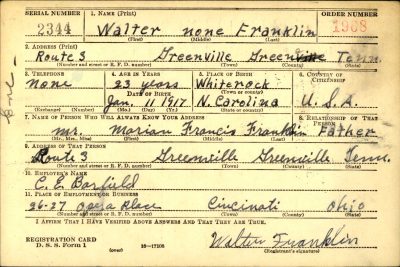 SERIAL NUMBER 1. NAME (Print) ORDER NUMBER
2344 Walter none Franklin 1908
(First) (Middle) (Last)
2. ADDRESS (Print)
Route 3 Greenville Greenville Tenn.
(Number and street or R. F. D. number) (Town) (County) (State)
3. TELEPHONE 4. AGE IN YEARS 5. PLACE OF BIRTH 6. COUNTRY OF CITIZENSHIP
None 23 years Whiterock
DATE OF BIRTH (Town or county)
Jan. 11 1917 N. Carolina U.S.A.
(Exchange) (Number) (Mo.) (Day) (Yr.) (State or country)
7. NAME OF PERSON WHO WILL ALWAYS KNOW YOUR ADDRESS 8. RELATIONSHIP OF THAT PERSON
mr. Marian Francis Franklin Father
(Mr., Mrs., Miss) (First) (Middle) (Last)
9. ADDRESS OF THAT PERSON
Route 3 Greenville Greenville Tenn.
(Number and street or R. F. D. number) (Town) (County) (State)
10. EMPLOYER'S NAME
C. E. Barfield
11. PLACE OF EMPLOYMENT OR BUSINESS
26-27 Opera Place Cincinati Ohio
(Number and street or R. F. D. number) (Town) (County) (State)
I AFFIRM THAT I HAVE VERIFIED ABOVE ANSWERS AND THAT THEY ARE TRUE.
REGISTRATION CARD
D. S. S. Form 1 16—17105 Walter Franklin
(Registrant's signature)